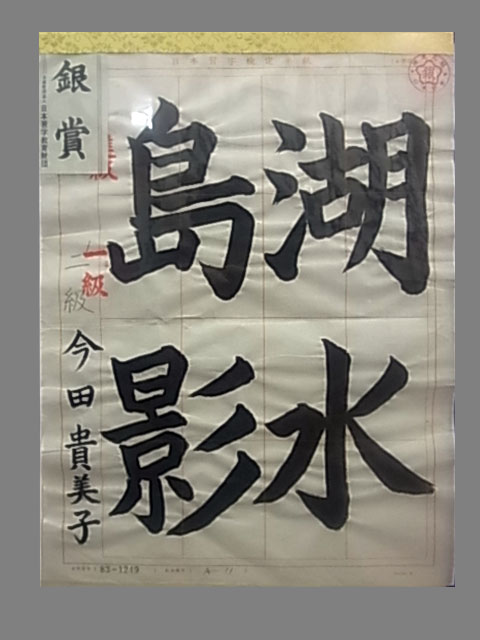 日本習字検定手紙
湖水
島影
銀賞
日本習字教育財団
進級
一級
二級
今田貴美子
83-1219